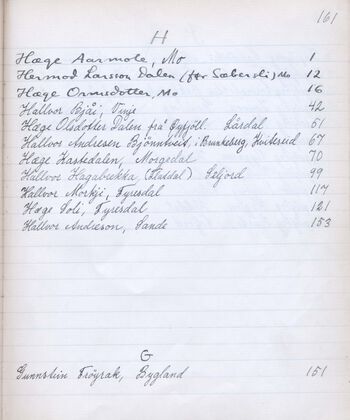 161
H
Hæge Aarmote, Mo 1
Hermod Larsson Dalen (før Sæbersli) Mo 12
Hæge Ormsdotter, Mo 16
Hallvor Bjåi, Vinje 42
Hæge Olsdotter Dalen frå Øyfjell. Lårdal 61
Hallvor Andresen Bjönntveit, i Brunkeberg, Kviteseid 67
Hæge Kastedalen, Morgedal 70
Hallvor Hagabrekka (Flatdal) Seljord 99
Hallvor Morkji, Fyresdal 117
Hæge Soli, Fyresdal 121
Hallvor Andreson, Sande 153
G
Gunnstein Tröyrak, Bygland 151